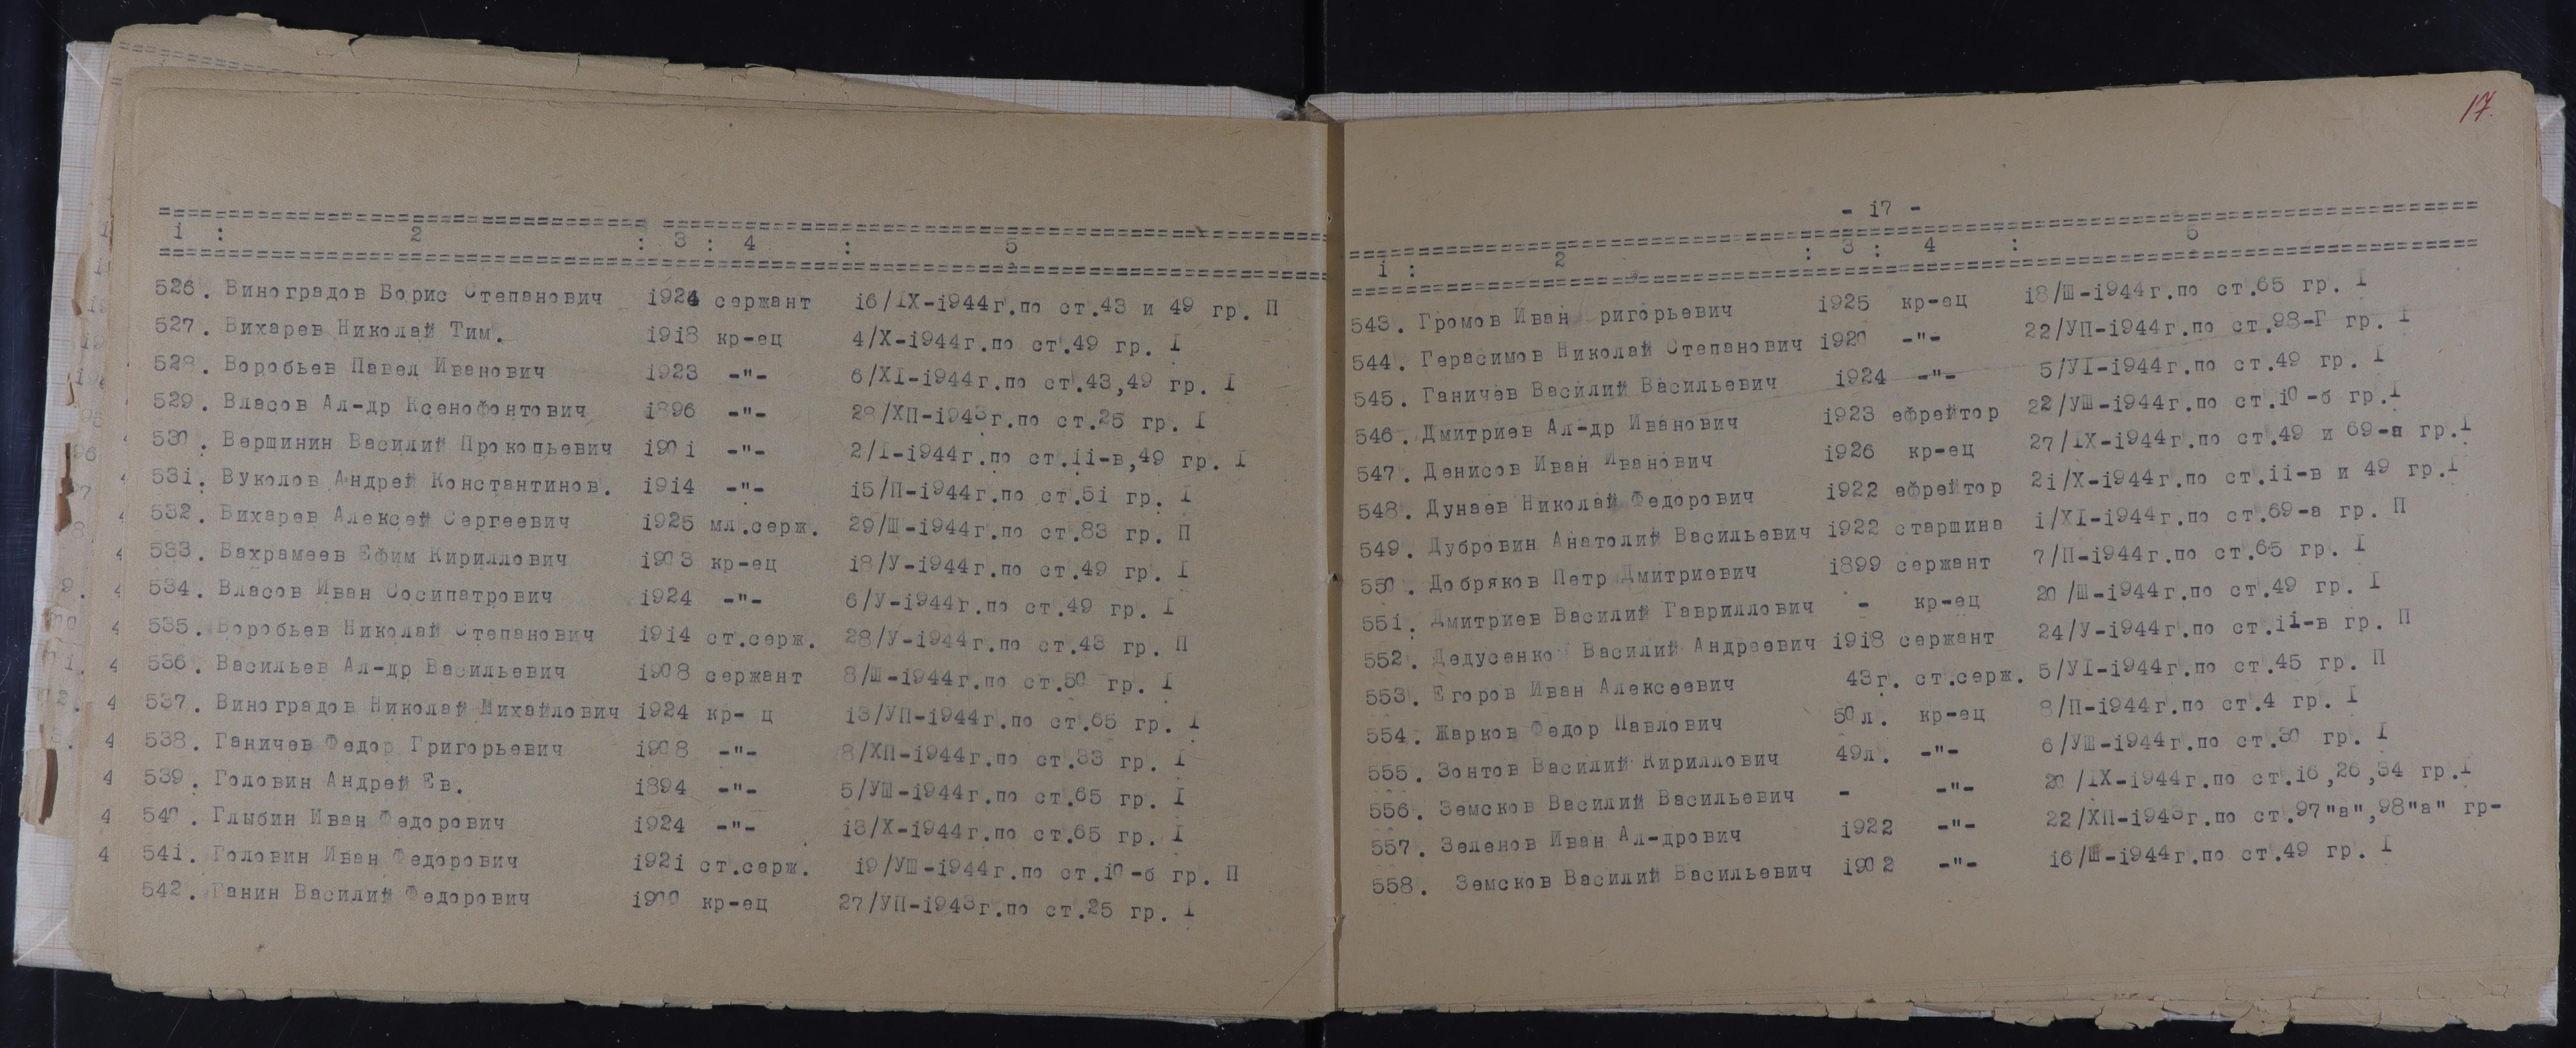 i : 2 : 3 : 4 : 5
526. Виноградов Борис Степанович i924 сержант i6/IX-i944г.по ст.43 и 49 гр. П
527. Вихарев Николай Тим. i9i8 кр-ец 4/X-i944г.по ст.49 гр. I
528. Воробьев Павел Иванович i923 -"- 6/XI-i944г.по ст.43,49 гр. I
529. Власов Ал-др Ксенофонтович i896 -"- 28/ХП-i943г.по ст.25 гр. I
530. Вершинин Василий Прокопьевич i90i -"- 2/I-i944г.по ст.ii-в,49 гр. I
53i. Вуколов Андрей Константинов. i9i4 -"- i5/П-i944г.по ст.5i гр. I
532. Вихарев Алексей Сергеевич i925 мл.серж. 29/Ш-i944г.по ст.83 гр. П
533. Вахрамеев Ефим Кириллович i903 кр-ец i8/У-i944г.по ст.49 гр. I
534. Власов Иван Сосипатрович i924 -"- 6/У-i944г.по ст.49 гр. I
535. Воробьев Николай Степанович i9i4 ст.серж. 28/У-i944г.по ст.43 гр. П
536. Васильев Ал-др Васильевич i908 сержант 8/Ш-i944г.по ст.50 гр. I
537. Виноградов Николай Михайлович i924 кр- ц i3/УП-i944г.по ст.65 гр. I
538. Ганичев Федор Григорьевич i908 -"- 8/ХП-i944г.по ст.33 гр. I
539. Головин Андрей Ев. i894 -"- 5/УШ-i944г.по ст.65 гр. I
540. Глыбин Иван Федорович i924 -"- i3/X-i944г.по ст.65 гр. I
54i. Головин Иван Федорович i92i ст.серж. i9/УШ-i944г.по ст.i0-б гр. П
542. Ганин Василий Федорович i900 кр-ец 27/УП-i943г.по ст.25 гр. I
17.
- i7 -
i : 2 : 3 : 4 : 5
543. Громов Иван ригорьевич i925 кр-ец i8/Ш-i944г.по ст.65 гр. I
544. Герасимов Николай Степанович i920 -"- 22/УП-i944г.по ст.98-Г гр. I
545. Ганичев Василий Васильевич i924 -"- 5/УI-i944г.по ст.49 гр. I
546. Дмитриев Ал-др Иванович i923 ефрейтор 22/УШ-i944г.по ст.i0-б гр.I
547. Денисов Иван Иванович i926 кр-ец 27/IX-i944г.по ст.49 и 69-а гр.I
548. Дунаев Николай Федорович i922 ефрейтор 2i/X-i944г.по ст.ii-в и 49 гр.I
549. Дубровин Анатолий Васильевич i922 старшина i/XI-i944г.по ст.69-а гр. П
550. Добряков Петр Дмитриевич i899 сержант 7/П-i944г.по ст.65 гр. I
55i. Дмитриев Василий Гавриллович - кр-ец 20/Ш-i944г.по ст.49 гр. I
552. Дедусенко Василий Андреевич i9i8 сержант 24/У-i944г.по ст.ii-в гр. П
553. Егоров Иван Алексеевич 43г. ст.серж. 5/УI-i944г.по ст.45 гр. П
554. Жарков Федор Павлович 50л. кр-ец 8/П-i944г.по ст.4 гр. I
555. Зонтов Василий Кириллович 49л. -"- 6/УШ-i944г.по ст.30 гр. I
556. Земсков Василий Васильевич - -"- 20/IX-i944г.по ст.i6,26,34 гр.I
557. Зеленов Иван Ал-дрович i922 -"- 22/ХП-i943г.по ст.97"а",98"а" гр-
558. Земсков Василий Васильевич i902 -"- i6/Ш-i944г.по ст.49 гр. I